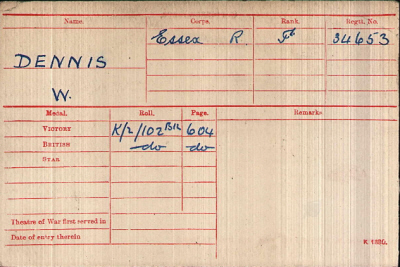 Name. Corps. Rank. Regtl. No.
DENNIS Essex R Pte 34653
W.
Medal. Roll. Page. Remarks
VICTORY K/2/102B12 604
BRITISH -do- do
STAR
Theatre of War first served in
Date of entry therein
K 1380.